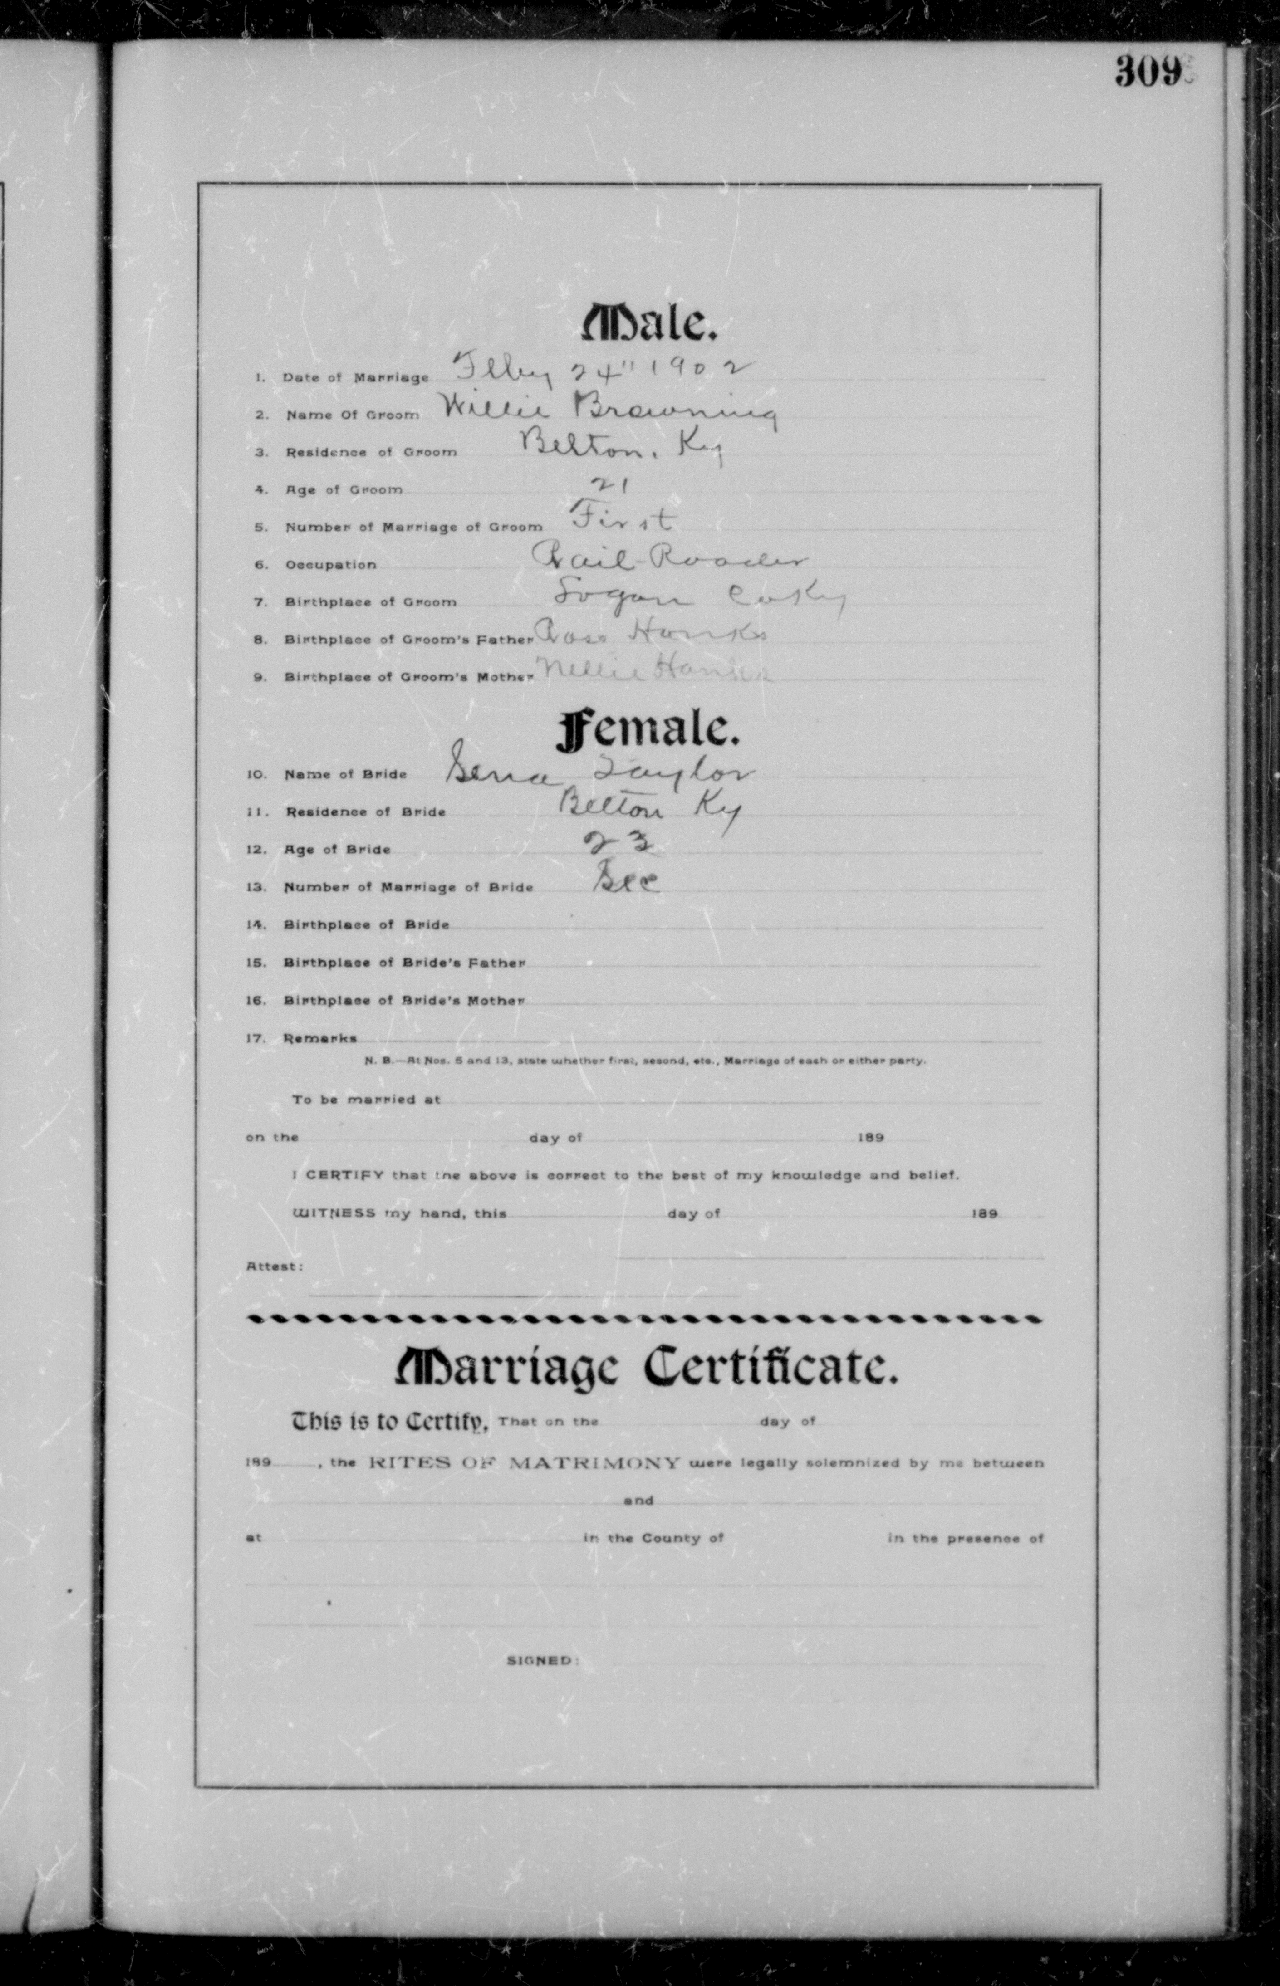 309
Male.
1. Date of Marriage Feby 24" 1902
2. Name Of Groom Willie Browning
3. Residence of Groom Belton, Ky
4. Age of Groom 21
5. Number of Marriage of Groom First
6. Occupation Rail-Roader
7. Birthplace of Groom Logan Co Ky
8. Birthplace of Groom's Father Ross
9. Birthplace of Groom's Mother Nellie
Female.
10. Name of Bride Sena Taylor
11. Residence of Bride Belton Ky
12. Age of Bride 23
13. Number of Marriage of Bride Sec
14. Birthplace of Bride
15. Birthplace of Bride's Father
16. Birthplace of Bride's Mother
17. Remarks
N. B.—At Nos. 5 and 13, state whether first, second, etc., Marriage of each or either party.
To be married at
on the day of 189
I CERTIFY that the above is correct to the best of my knowledge and belief.
WITNESS my hand, this day of 189
Attest:
Marriage Certificate.
This is to Certify, That on the day of
189 , the RITES OF MATRIMONY were legally solemnized by me between
and
at in the County of in the presence of
SIGNED: